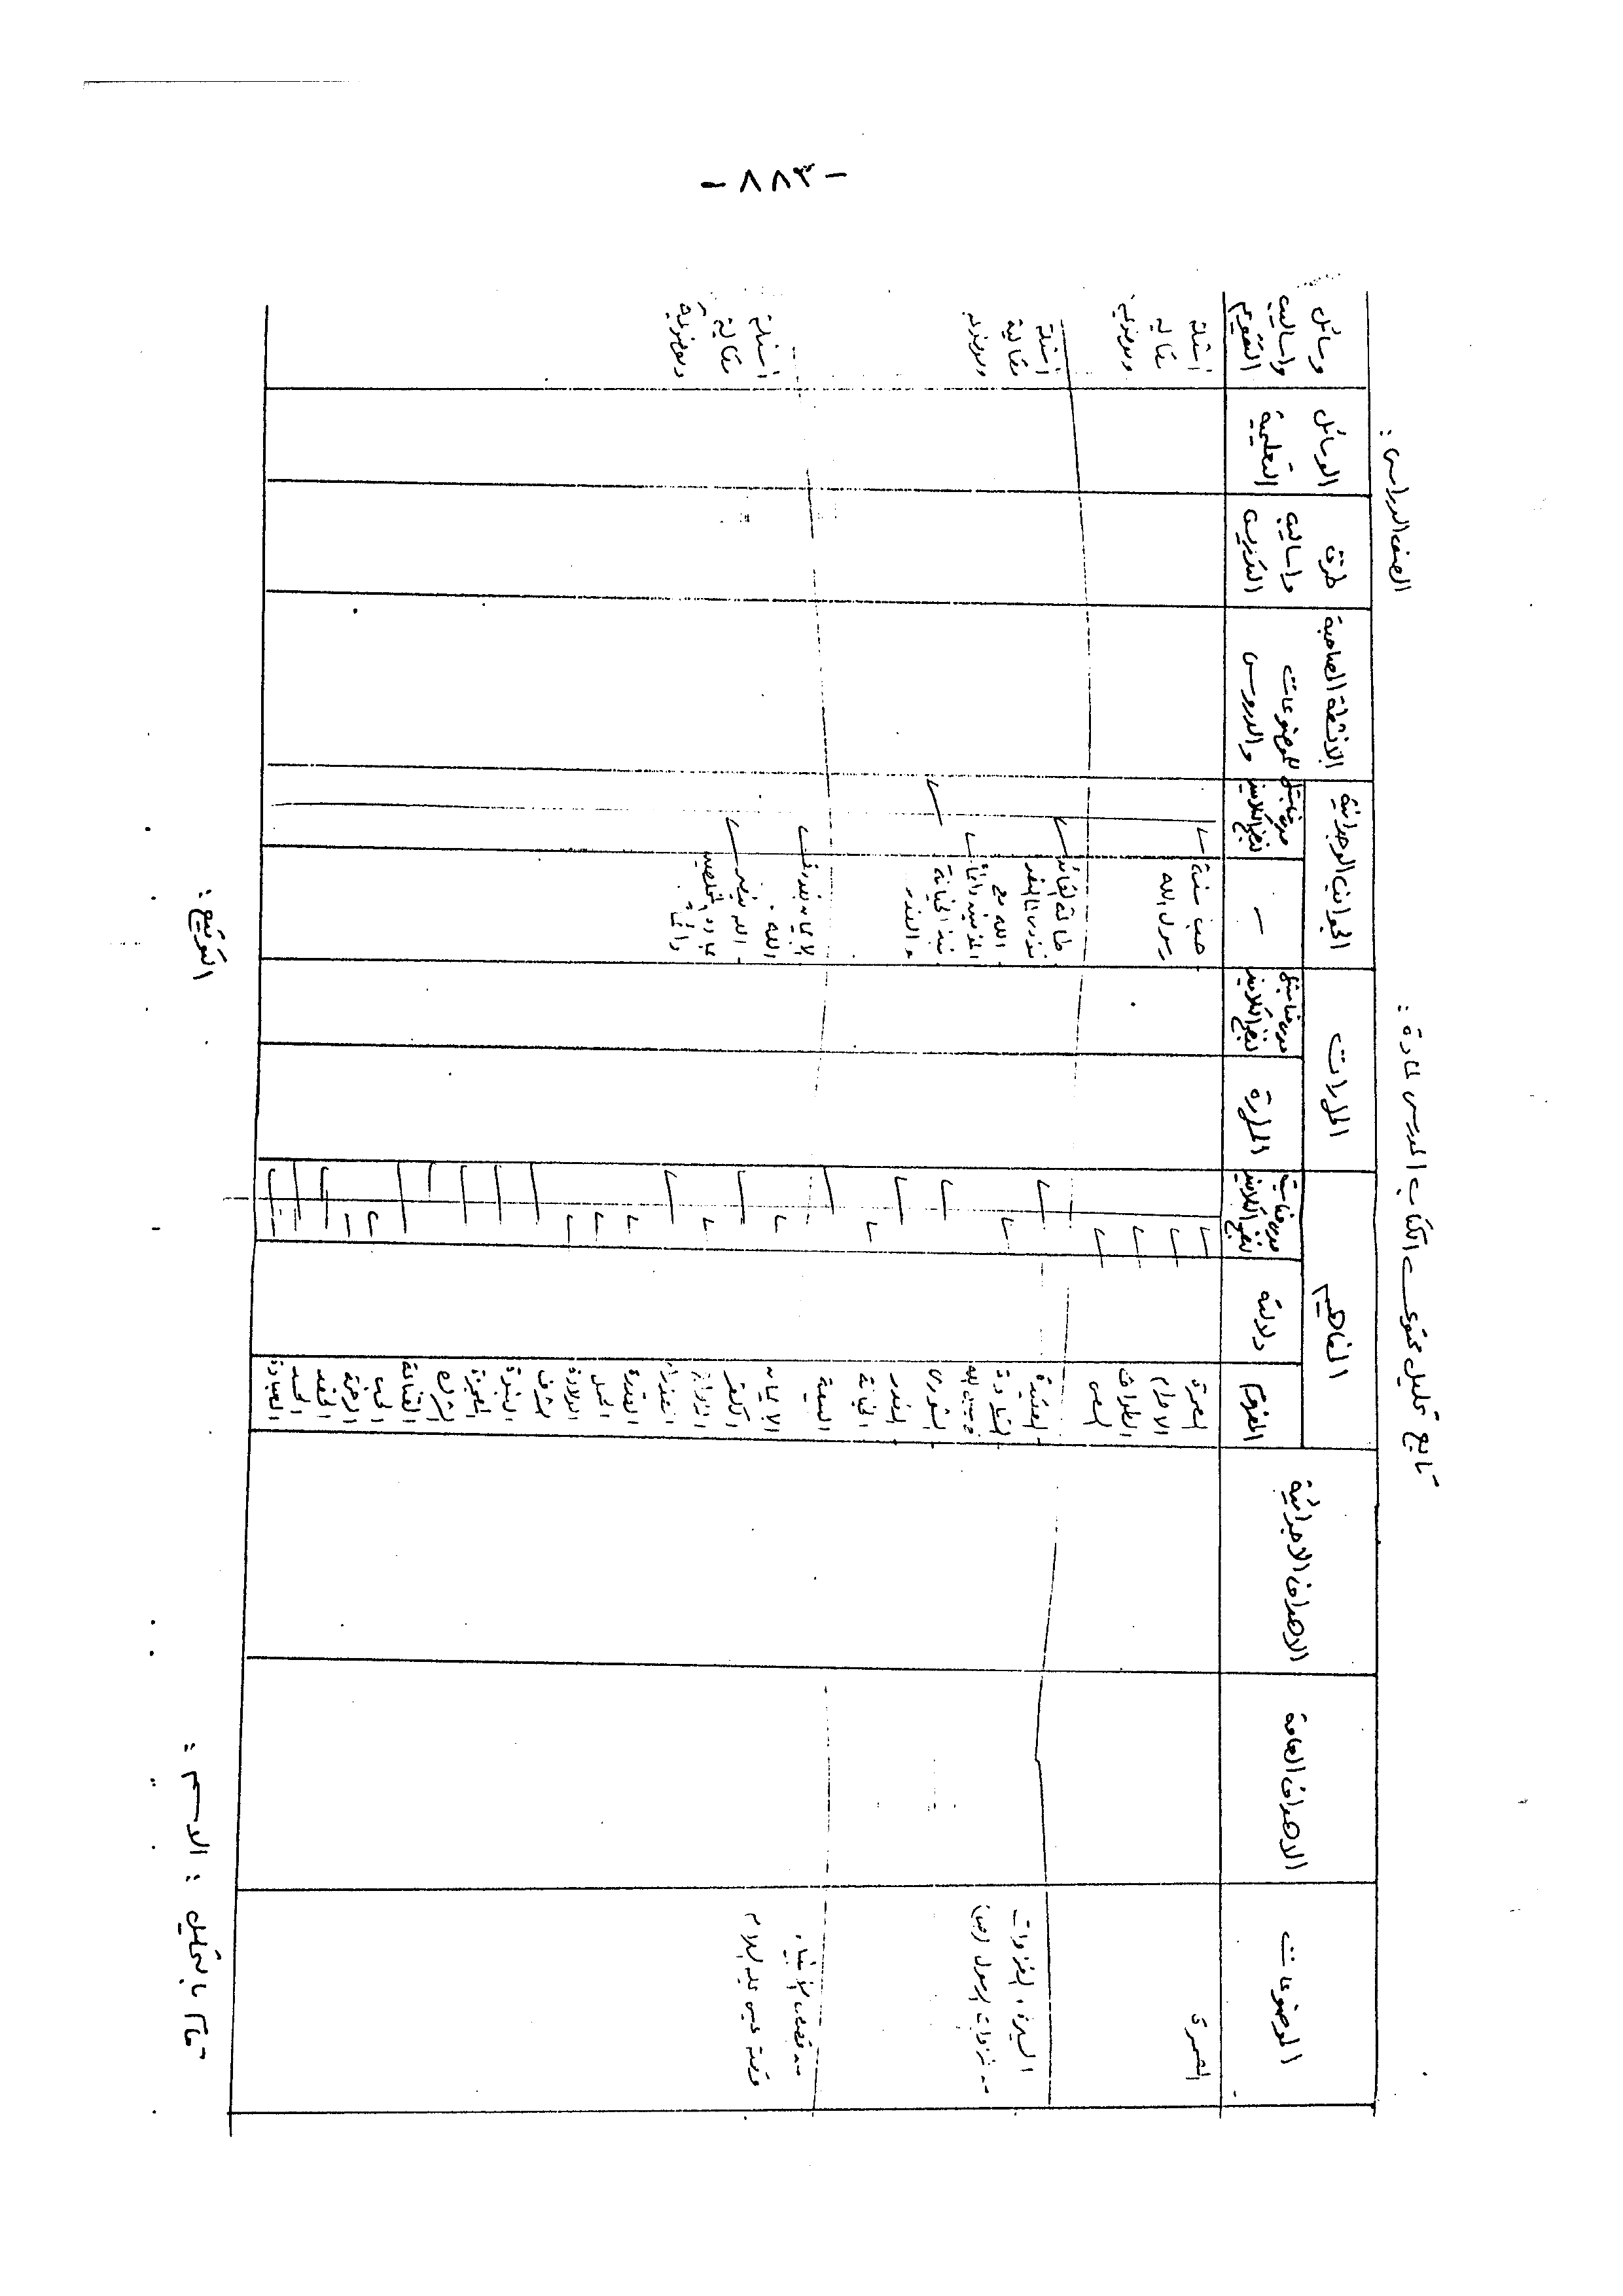 -٨٨٣-
تابع تحليل محتوى الكتاب المدرسي لمادة :
الصف الدراسي :
الموضوعات
الاهداف العامة
الاهداف الاجرائية
المفاهيم
المفهوم
دلالته
مدى مناسبته
لنضج التلاميذ
المهارات
المهارة
مدى مناسبتها
لنضج التلاميذ
الجوانب الوجدانية
مدى مناسبتها
لنضج التلاميذ
الانشطة المصاحبة
للموضوعات
والدروس
طرق
واساليب
التدريس
الوسائل
التعليمية
وسائل
واساليب
التقويم
العمرة
العمرة
الاحرام
الطواف
السعى
حب سنة
رسول الله
أسئلة
مقالية
وموضوعية
السيرة، الغزوات
من غزوات الرسول (ص)
العقيدة
الشورى
الغدر
الخيانة
البيعة
طاعة القائد
الله مع
المؤمنين دائماً
نبذ الخيانة
والغدر
أسئلة
مقالية
وموضوعية
من قصص الأنبياء
قصة عيسى عليه السلام
الايمان
الكفر
العذراء
القدرة
الحمل
الولادة
الشرف
النبوة
المعجزة
الشرك
القناعة
الحب
الرحمة
الحقد
الحسد
العبادة
الايمان بقدرة
الله
الله ينصر
عباده المخلصين
دائماً
أسئلة
مقالية
وموضوعية
قام بالتحليل : الاسم :
التوقيع :